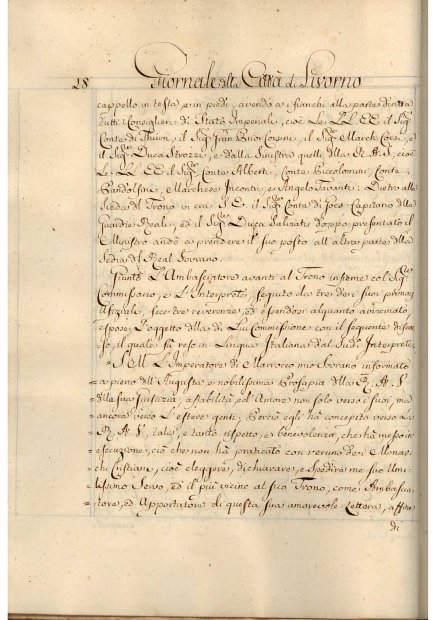 18 Giornale della Città di Livorno
cappello in testa, e in piedi, avendo a i fianchi alla parte dritta
tutti i Consiglieri di Stato Imperiale, cioè Le LL. EE. il Sigr
Conte di Thurn, il Sigr Gran Prior Corsini, il Sigr March. Corsi, e
il Sigr Duca Strozzi, e dalla Sinistra quelli della R. A. S., cioè
Le LL. EE. il Sigr Conte Alberti, Conte Piccolomini, Conte
Pandolfini, Marchese Incontri, e Angelo Tavanti: Dietro alla
Sedia del Trono in era S. E. il Sigr Conte di Goes Capitano delle
Guardie Reali, ed il Sigr Duca Salviati doppo presentato il
Ministro andò a prendere il suo posto all'altra parte della
Sedia del Real Sovrano.
Giunto L'Ambasciatore avanti al Trono insieme col Sigr
Commissario, e L'Interprete, seguito da tre dei suoi primari
Ufiziali, fece tre reverenze, ed essendosi alquanto avvicinato
espose L'oggetto della di Lui Commissione con il seguente discor-
so, il quale fu reso in Lingua Italiana dal Sudo Interprete.
= S. M. L'Imperatore di Marrocco mio Sovrano informato
= a pieno dell'Augusta e nobilissima Prosapia della R. A. V.
= della sua Giustizia, affabilità ed Amore non solo verso i suoi, ma
= ancora verso L'estere genti; Perciò egli ha concepito verso La
= R. A. V. tale, e tanto rispetto, e benevolenza, che ha messo in
= esecuzione, ciò che non ha praticato con veruno dei Monar-
= chi Cristiani, cioè eleggere, dichiarare, e spedire me suo Umi-
= lissimo Servo, ed il più vicino al suo Trono, come Ambascia-
= tore, ed Apportatore di questa sua amorevole Lettera, affine
di